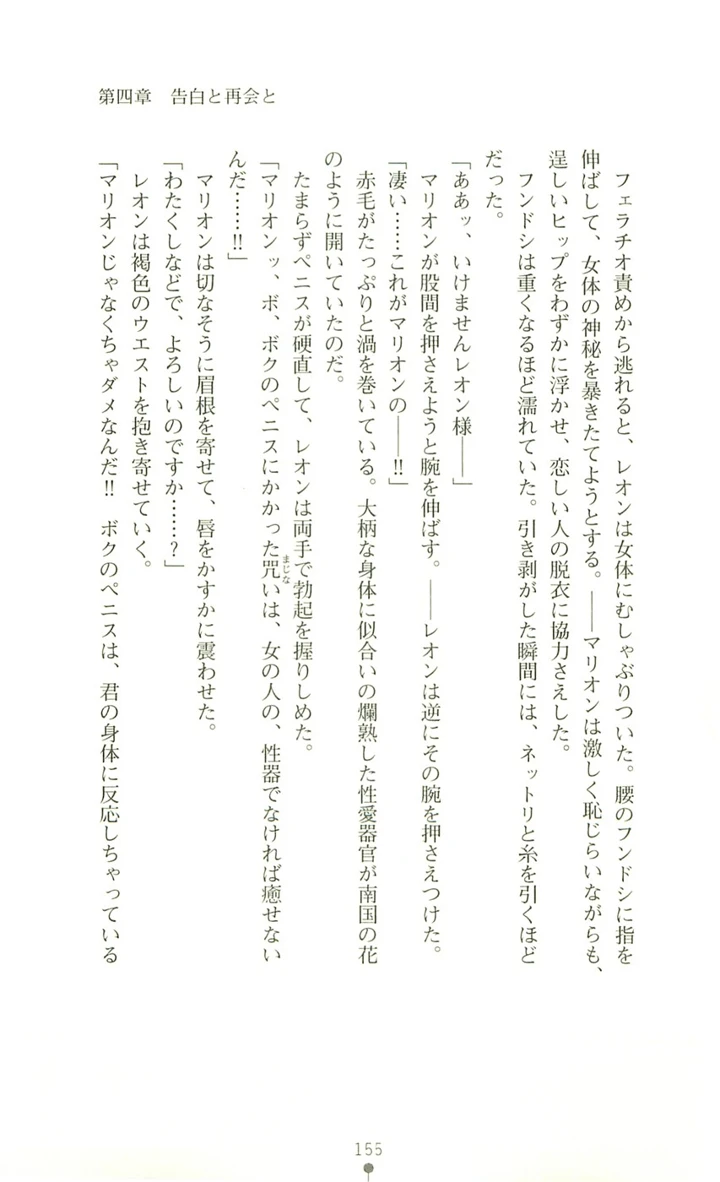 第四章　告白と再会と
フェラチオ責めから逃れると、レオンは女体にむしゃぶりついた。腰のフンドシに指を
伸ばして、女体の神秘を暴きたてようとする。――マリオンは激しく恥じらいながらも、
逞しいヒップをわずかに浮かせ、恋しい人の脱衣に協力さえした。
フンドシは重くなるほど濡れていた。引き剥がした瞬間には、ネットリと糸を引くほど
だった。
「ああッ、いけませんレオン様――」
マリオンが股間を押さえようと腕を伸ばす。――レオンは逆にその腕を押さえつけた。
「凄い……これがマリオンの――!!」
赤毛がたっぷりと渦を巻いている。大柄な身体に似合いの爛熟した性愛器官が南国の花
のように開いていたのだ。
たまらずペニスが硬直して、レオンは両手で勃起を握りしめた。
「マリオンッ、ボ、ボクのペニスにかかった呪い(まじな)は、女の人の、性器でなければ癒せない
んだ……!!」
マリオンは切なそうに眉根を寄せて、唇をかすかに震わせた。
「わたくしなどで、よろしいのですか……?」
レオンは褐色のウエストを抱き寄せていく。
「マリオンじゃなくちゃダメなんだ!!　ボクのペニスは、君の身体に反応しちゃっている
155